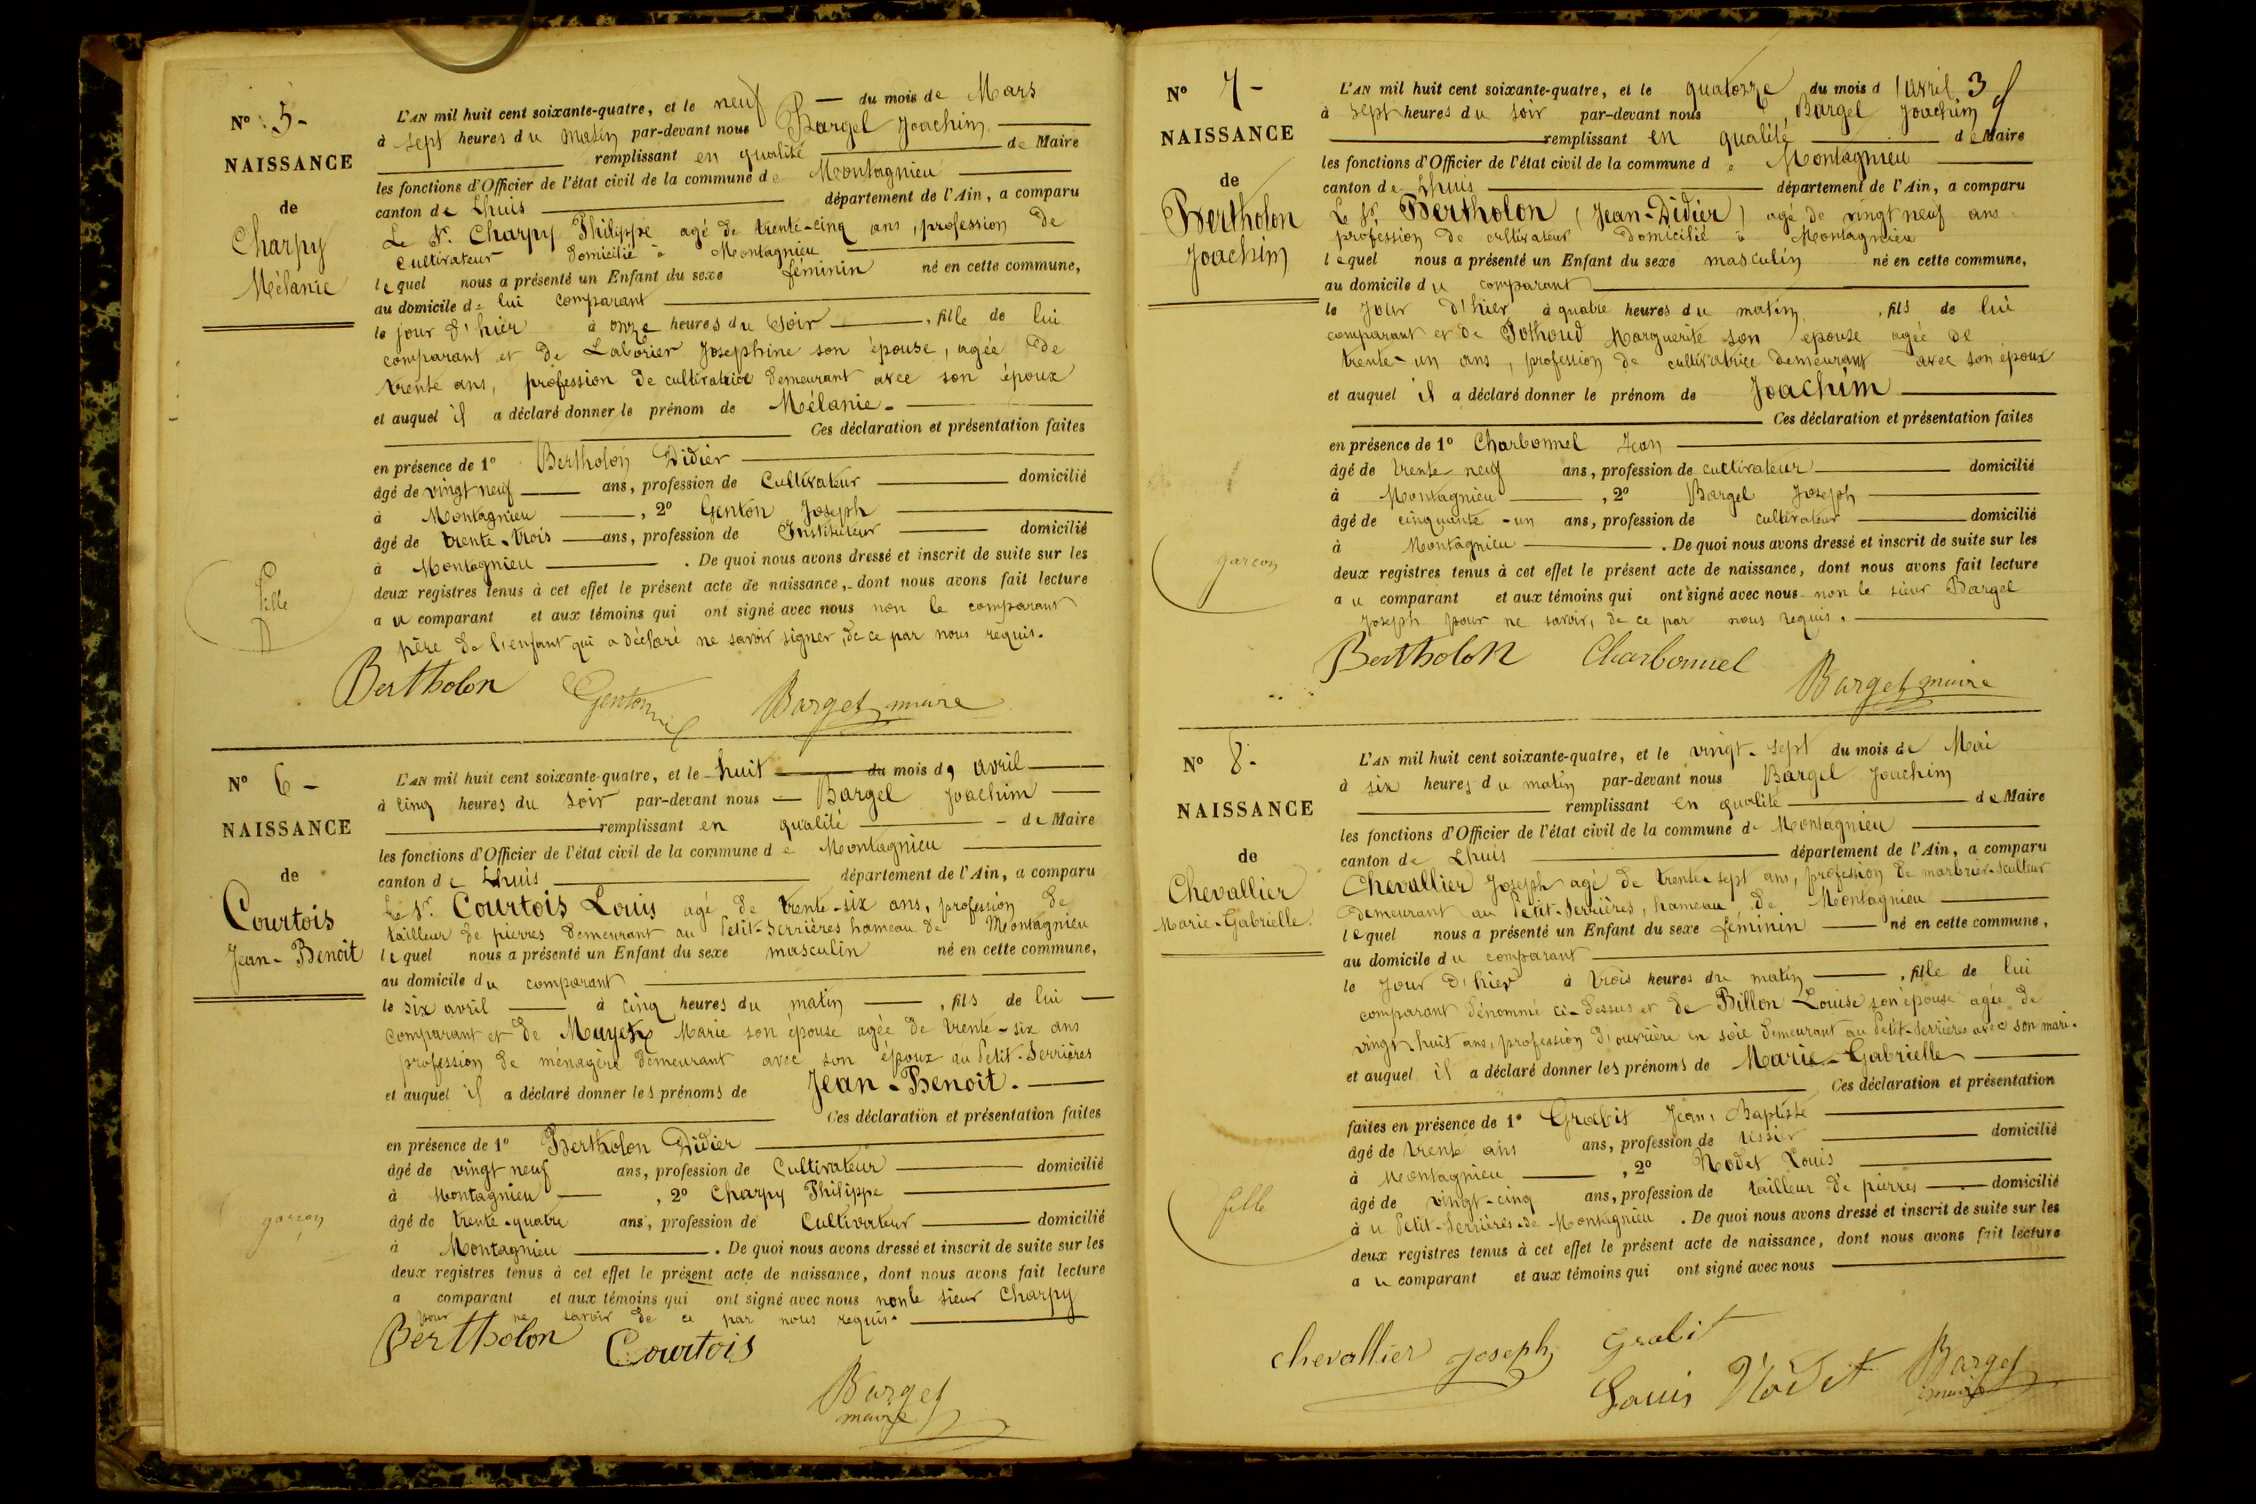 N° 5-
NAISSANCE
de
Charpy
Mélanie
L'AN mil huit cent soixante-quatre, et le neuf — du mois de Mars
à sept heures du matin par-devant nous Bargel Joachim
remplissant en qualité de Maire
les fonctions d'Officier de l'état civil de la commune de Montagnieu
canton de Lhuis département de l'Ain, a comparu
Le Sr. Charpy Philippe agé de trente-cinq ans, profession de
Cultivateur domicilié à Montagnieu
lequel nous a présenté un Enfant du sexe féminin né en cette commune,
au domicile de lui comparant
le jour d'hier à onze heures du soir, fille de lui
comparant et de Laborier Josephine son épouse, agée de
trente ans, profession de cultivatrice demeurant avec son époux
et auquel il a déclaré donner le prénom de Mélanie.
Ces déclaration et présentation faites
en présence de 1° Bertholon Didier
âgé de vingt neuf ans, profession de Cultivateur domicilié
à Montagnieu, 2° Genton Joseph
âgé de trente-trois ans, profession de Instituteur domicilié
à Montagnieu. De quoi nous avons dressé et inscrit de suite sur les
deux registres tenus à cet effet le présent acte de naissance, dont nous avons fait lecture
au comparant et aux témoins qui ont signé avec nous non le comparant
père de l'enfant qui a déclaré ne savoir signer, de ce par nous requis.
fille
Bertholon Genton Bargel maire
N° 6-
NAISSANCE
de
Courtois
Jean-Benoit
L'AN mil huit cent soixante-quatre, et le huit du mois d'avril
à cinq heures du soir par-devant nous Bargel Joachim
remplissant en qualité de Maire
les fonctions d'Officier de l'état civil de la commune de Montagnieu
canton de Lhuis département de l'Ain, a comparu
Le Sr. Courtois Louis agé de trente-six ans, profession de
tailleur de pierres demeurant au Petit-Serrières hameau de Montagnieu
lequel nous a présenté un Enfant du sexe masculin né en cette commune,
au domicile du comparant
le six avril à cinq heures du matin, fils de lui
comparant et de Marie son épouse agée de trente-six ans
profession de ménagère demeurant avec son époux au Petit-Serrières
et auquel il a déclaré donner les prénoms de Jean-Benoit.
Ces déclaration et présentation faites
en présence de 1° Bertholon Didier
âgé de vingt neuf ans, profession de Cultivateur domicilié
à Montagnieu, 2° Charpy Philippe
âgé de trente-quatre ans, profession de Cultivateur domicilié
à Montagnieu. De quoi nous avons dressé et inscrit de suite sur les
deux registres tenus à cet effet le présent acte de naissance, dont nous avons fait lecture
a comparant et aux témoins qui ont signé avec nous non le sieur Charpy
pour ne savoir de ce par nous requis.
garçon
Bertholon Courtois
Bargel
maire
N° 7-
NAISSANCE
de
Bertholon
Joachim
L'AN mil huit cent soixante-quatre, et le quatorze du mois d'avril 3
à sept heures du soir par-devant nous, Bargel Joachim
remplissant en qualité de Maire
les fonctions d'Officier de l'état civil de la commune de Montagnieu
canton de Lhuis département de l'Ain, a comparu
Le Sr. Bertholon (Jean-Didier) agé de vingt neuf ans
profession de cultivateur domicilié à Montagnieu
lequel nous a présenté un Enfant du sexe masculin né en cette commune,
au domicile du comparant
le jour d'hier à quatre heures du matin, fils de lui
comparant et de Marguerite son épouse agée de
trente-un ans, profession de cultivatrice demeurant avec son époux
et auquel il a déclaré donner le prénom de Joachim
Ces déclaration et présentation faites
en présence de 1° Charbonnel Jean
âgé de trente neuf ans, profession de cultivateur domicilié
à Montagnieu, 2° Bargel Joseph
âgé de cinquante-un ans, profession de cultivateur domicilié
à Montagnieu. De quoi nous avons dressé et inscrit de suite sur les
deux registres tenus à cet effet le présent acte de naissance, dont nous avons fait lecture
au comparant et aux témoins qui ont signé avec nous non le sieur Bargel
Joseph pour ne savoir, de ce par nous requis.
garçon
Bertholon Charbonnel Bargel maire
N° 8-
NAISSANCE
de
Chevallier
Marie-Gabrielle.
L'AN mil huit cent soixante-quatre, et le vingt-sept du mois de Mai
à six heures du matin par-devant nous Bargel Joachim
remplissant en qualité de Maire
les fonctions d'Officier de l'état civil de la commune de Montagnieu
canton de Lhuis département de l'Ain, a comparu
Chevallier Joseph agé de trente-sept ans, profession de marbrier-sculteur
demeurant au Petit-Serrières, hameau de Montagnieu
lequel nous a présenté un Enfant du sexe féminin né en cette commune,
au domicile du comparant
le jour d'hier à trois heures du matin, fille de lui
comparant dénommé ci-dessus et de Billon Louise son épouse agée de
vingt huit ans, profession d'ouvrière en soie demeurant au Petit-Serrières avec son mari.
et auquel il a déclaré donner les prénoms de Marie-Gabrielle
Ces déclaration et présentation
faites en présence de 1° Grabit Jean, Baptiste
âgé de trente ans ans, profession de domicilié
à Montagnieu, 2° Nodet Louis
âgé de vingt-cinq ans, profession de tailleur de pierres domicilié
au Petit-Serrières-de-Montagnieu. De quoi nous avons dressé et inscrit de suite sur les
deux registres tenus à cet effet le présent acte de naissance, dont nous avons fait lecture
au comparant et aux témoins qui ont signé avec nous
fille
chevallier joseph Grabit
Louis Nodet Bargel
maire